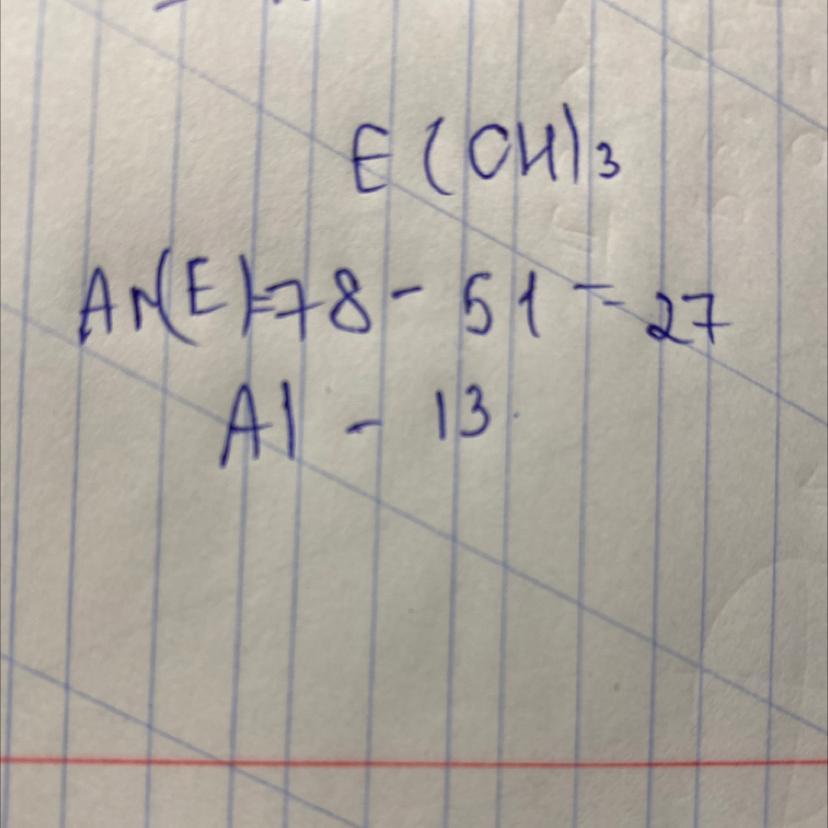 E(OH)3
Ar(E)=78-51=27
Al - 13.